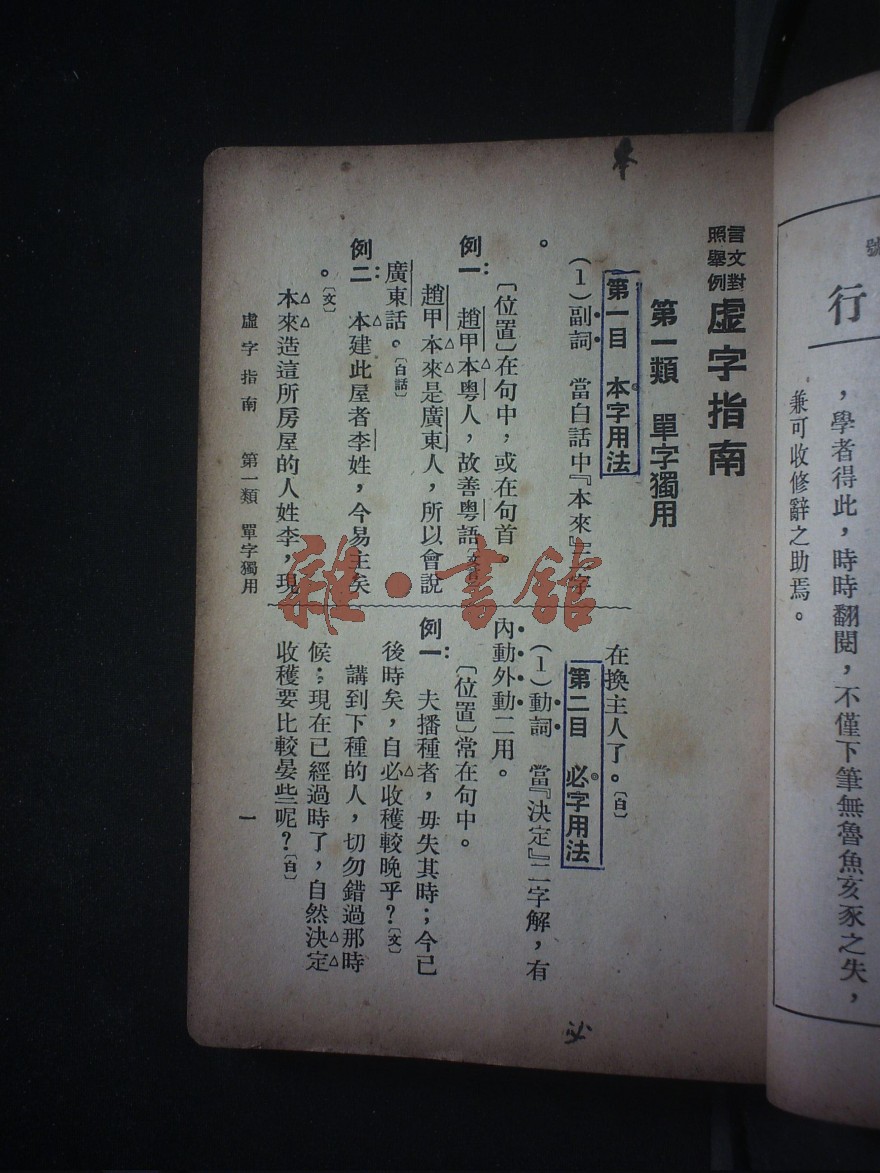 號
行
，學者得此，時時翻閱，不僅下筆無魯魚亥豕之失，
兼可收修辭之助焉。
本
言文對
照舉例
虛字指南
第一類　單字獨用
第一目　本字用法
(1)副詞　當白話中『本來』二字
。
〔位置〕在句中，或在句首。
例一：趙甲本粵人，故善粵語
趙甲本來是廣東人，所以會說
廣東話。〔白話〕
例二：本建此屋者李姓，今易主矣
。〔文〕
本來造這所房屋的人姓李，現
在換主人了。〔白〕
第二目　必字用法
(1)動詞　當『決定』二字解，有
內動外動二用。
〔位置〕常在句中。
例一：夫播種者，毋失其時；今已
後時矣，自必收穫較晚乎？〔文〕
講到下種的人，切勿錯過那時
候；現在已經過時了，自然決定
收穫要比較晏些呢？〔白〕
虛字指南　第一類　單字獨用
一
必
雜·書館